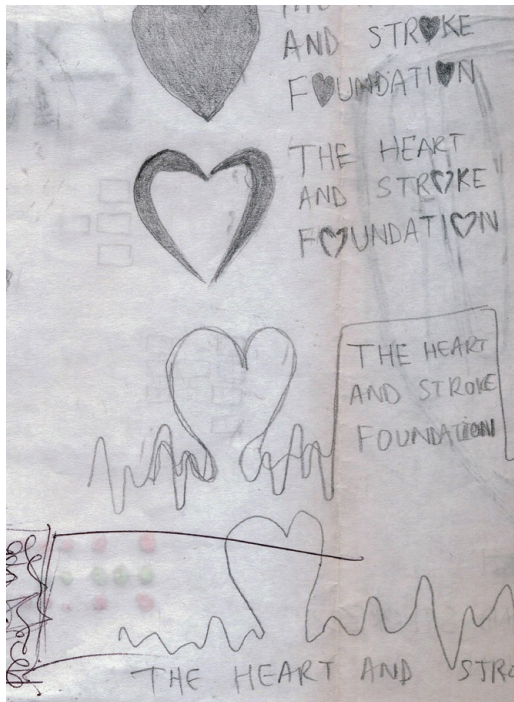 AND STROKE
FOUNDATION
THE HEART
AND STROKE
FOUNDATION
THE HEART
AND STROKE
FOUNDATION
THE HEART AND STRO